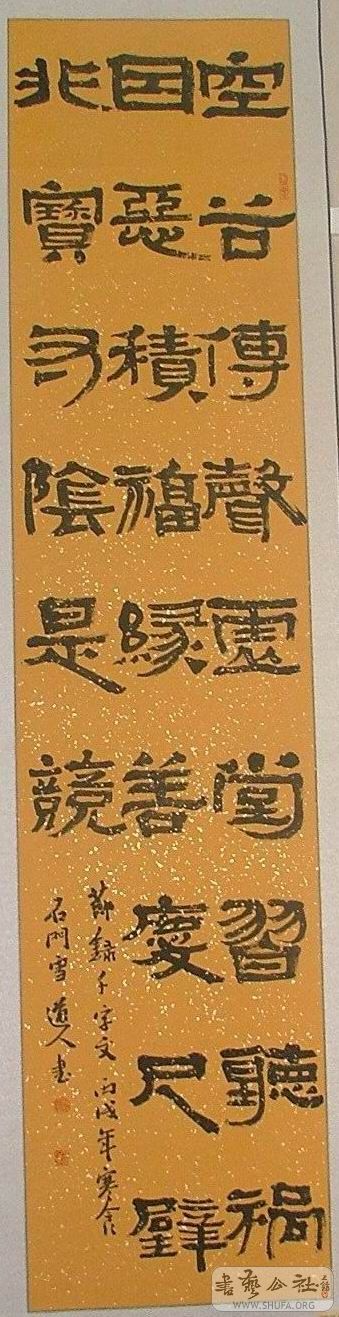 空谷傳聲虛堂習聽禍
因惡積福緣善慶尺璧
非寶寸陰是競
節錄千字文丙戌年寒食
石門雪道人書
書艺公社
WWW.SHUFA.ORG